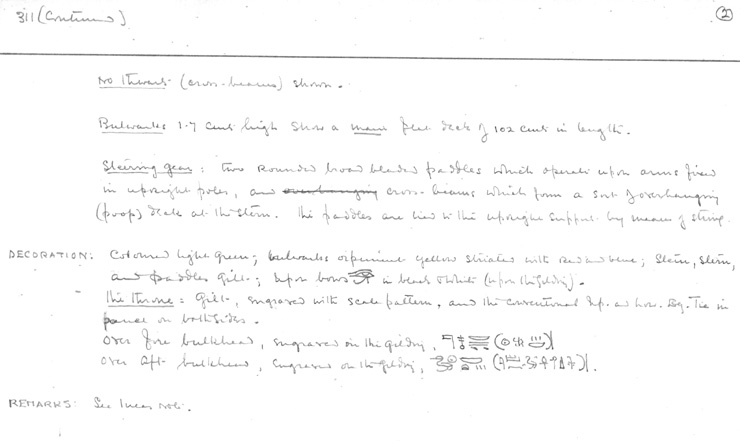 311 (Continued) (2)
No Thwarts (cross-beams) shown.
Bulwarks 1.7 cent high show a main free deck of 102 cent in length.
Steering gear: two rounded broad bladed paddles which operate upon arms fixed
in upright poles, and overhanging cross-beams which form a sort of overhanging
(poop) deck at the stern. The paddles are tied to the upright support by means of string.
DECORATION: Coloured light green; bulwarks orpiment yellow striated with red and blue; Stem, stern,
and paddles gilt; upon bows 𓂀 in black & white (upon the gilding).
The throne: Gilt, engraved with scale pattern, and the conventional Up. and Low. Eg. Tie in
panel on both sides.
Over fore bulkhead, engraved on the gilding,
Over aft bulkhead, engraved on the gilding,
REMARKS: See Note.